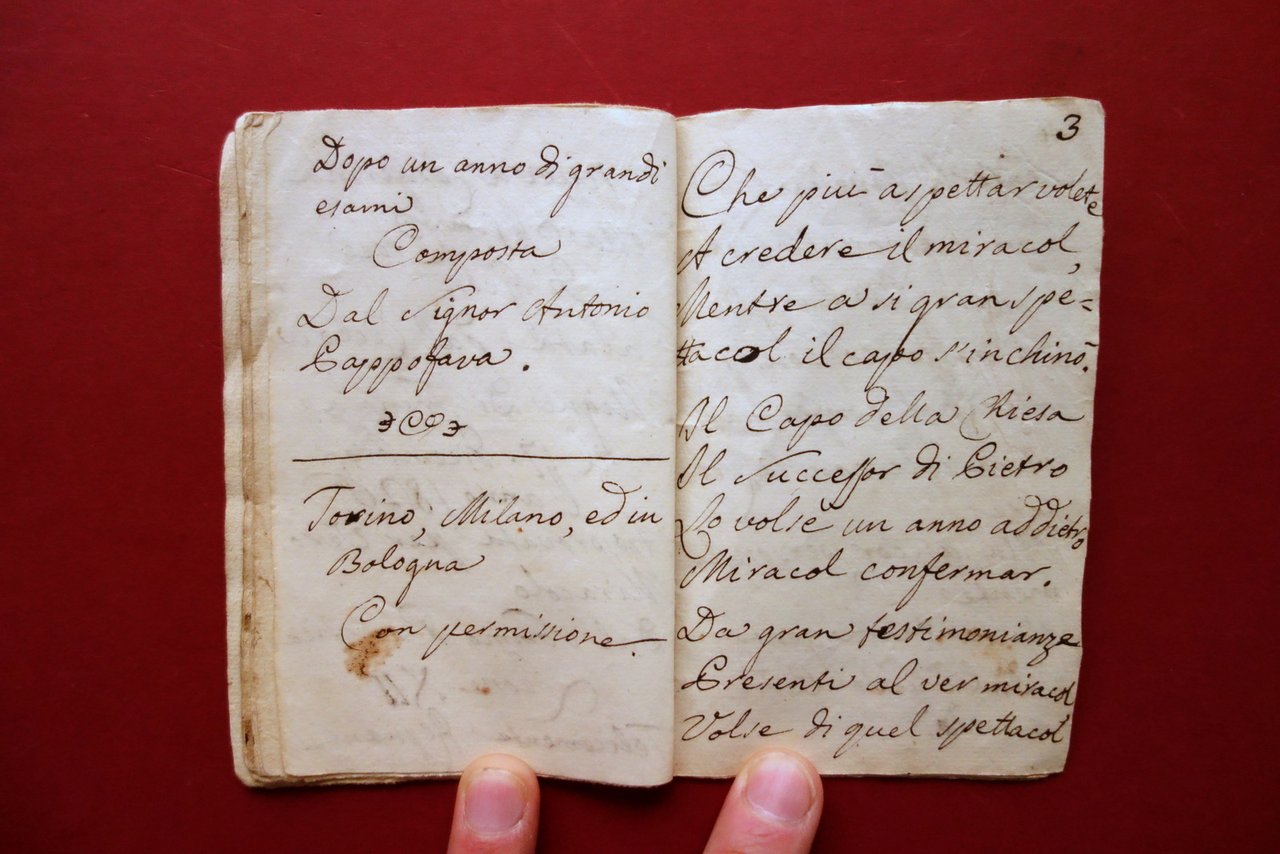 Dopo un anno di grandi
esami
Composta
Dal Signor Antonio
Pappofava.
Torino, Milano, ed in
Bologna
Con permissione.
3
Che più aspettar volete
A credere il miracol,
Mentre a si gran spe=
ttacol il capo s'inchinò.
Il Capo della Chiesa
Il Successor di Pietro
Lo volse un anno addietro
Miracol confermar.
Da gran testimonianze
Presenti al ver miracol
Volse di quel spettacol